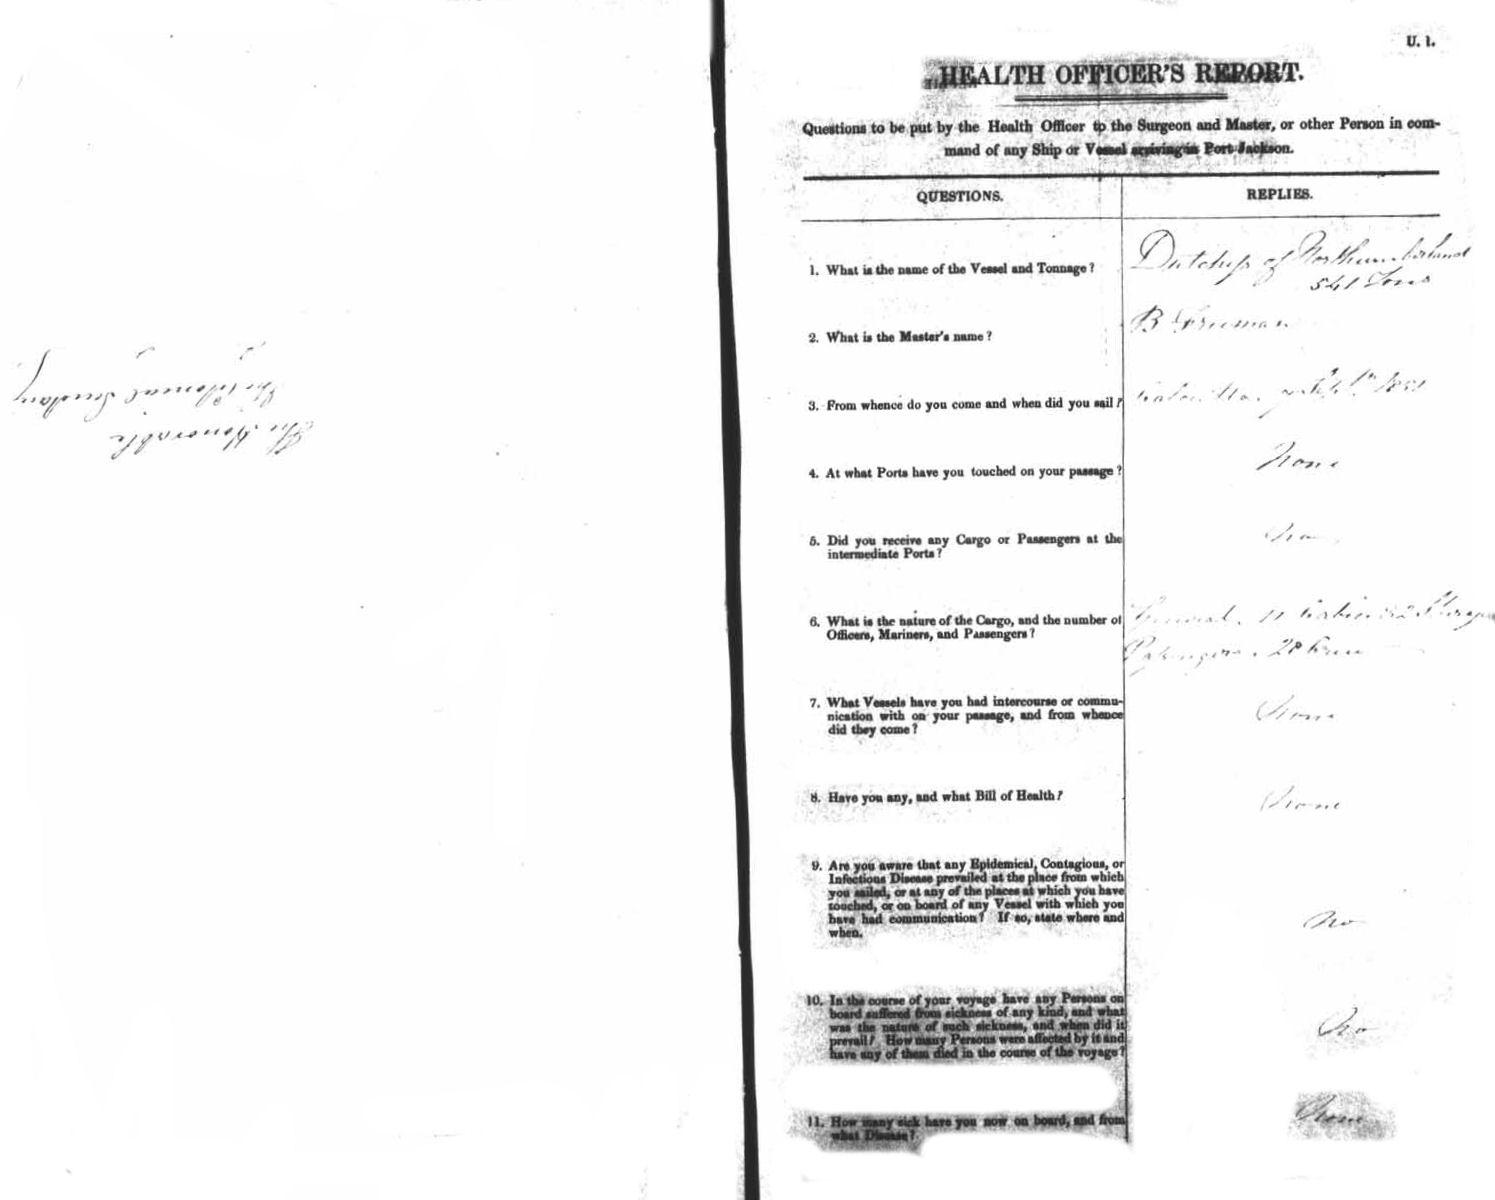 The Honorable
The Colonial Secretary
U. 1.
HEALTH OFFICER'S REPORT.
Questions to be put by the Health Officer to the Surgeon and Master, or other Person in com-
mand of any Ship or Vessel arriving in Port Jackson.
QUESTIONS.
REPLIES.
1. What is the name of the Vessel and Tonnage?
Dutchess of Northumberland
541 Tons
2. What is the Master's name?
B Freeman
3. From whence do you come and when did you sail?
1851
4. At what Ports have you touched on your passage?
None
5. Did you receive any Cargo or Passengers at the
intermediate Ports?
6. What is the nature of the Cargo, and the number of
Officers, Mariners, and Passengers?
General. 11 Cabin
Passengers. 20 Crew
7. What Vessels have you had intercourse or commu-
nication with on your passage, and from whence
did they come?
None
8. Have you any, and what Bill of Health?
None
9. Are you aware that any Epidemical, Contagious, or
Infectious Disease prevailed at the place from which
you sailed, or at any of the places at which you have
touched, or on board of any Vessel with which you
have had communication? If so, state where and
when.
No
10. In the course of your voyage have any Persons on
board suffered from sickness of any kind, and what
was the nature of such sickness, and when did it
prevail? How many Persons were affected by it and
have any of them died in the course of the voyage?
No
11. How many sick have you now on board, and from
what Disease?
None